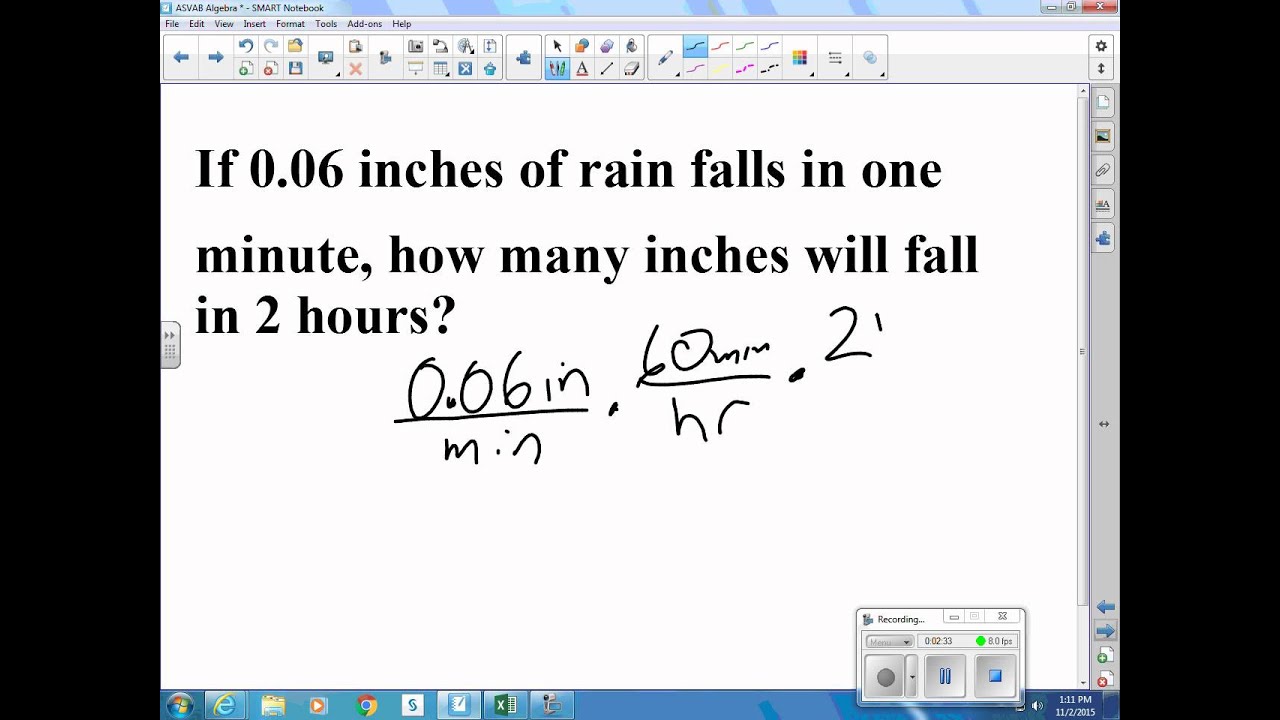 ASVAB Algebra * - SMART Notebook
File Edit View Insert Format Tools Add-ons Help
If 0.06 inches of rain falls in one
minute, how many inches will fall
in 2 hours?
0.06 in · 60 min · 2
min hr
Recording...
Menu
0:02:33 8.0 fps
1:11 PM
11/2/2015